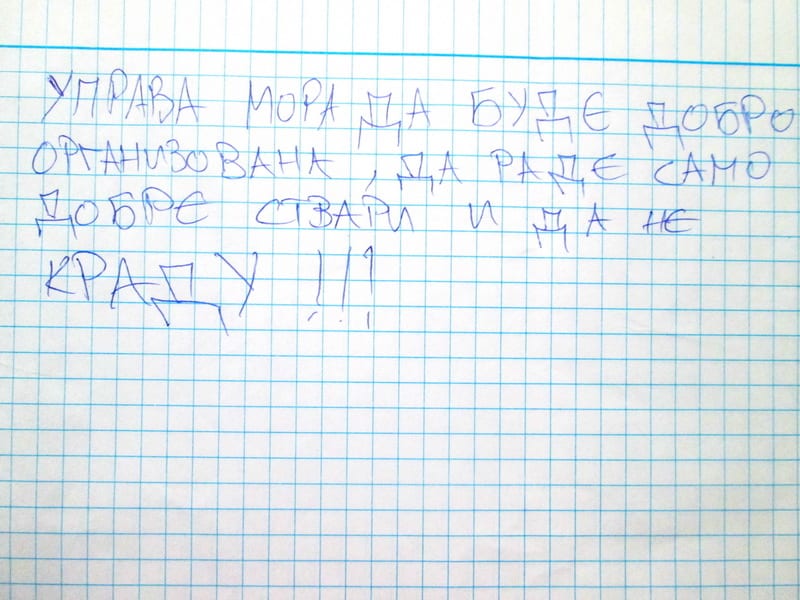 УПРАВА МОРА ДА БУДЕ ДОБРО
ОРГАНИЗОВАНА , ДА РАДЕ САМО
ДОБРЕ СТВАРИ И ДА НЕ
КРАДУ !!!